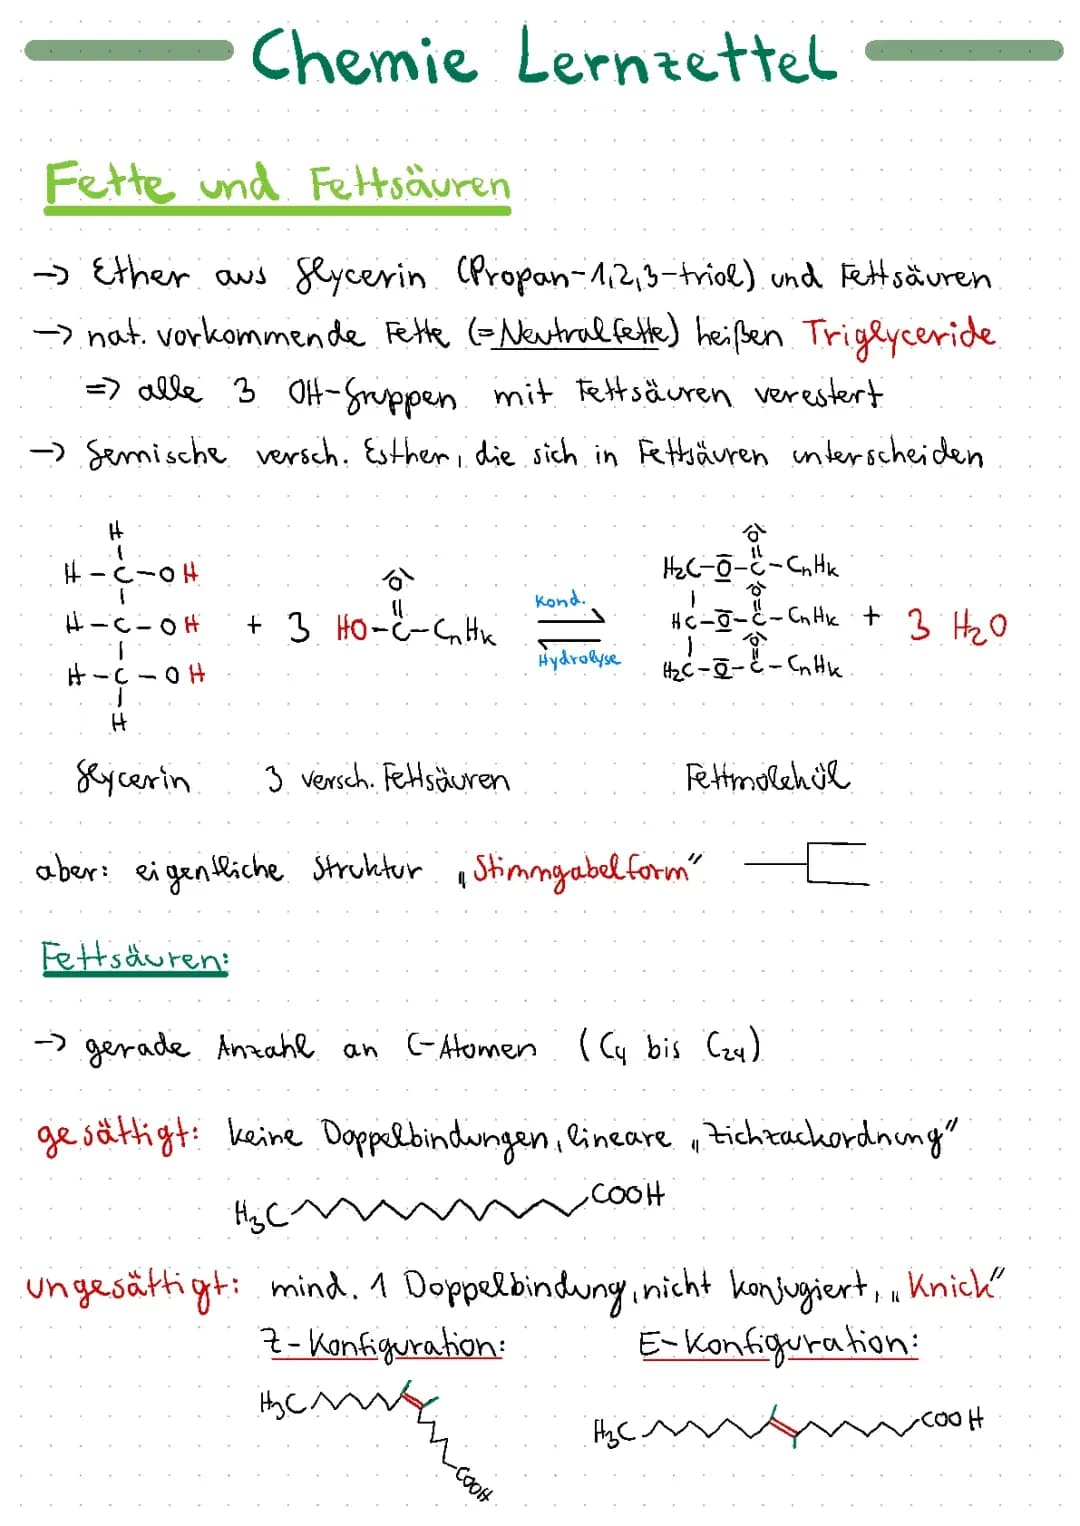 Chemie Lernzettel
Fette und Fettsäuren
→ Ether aus Glycerin (Propan-1,2,3-triol) und Fettsäuren
→ nat. vorkommende Fette (=Neutralfette) heißen Triglyceride
=> alle 3 OH-Gruppen mit Fettsäuren verestert
→ Gemische versch. Esther, die sich in Fettsäuren unterscheiden
H
H-C-OH
H-C-OH
H-C-OH
H
+ 3 HO-C-CnHk
O
Kond.
Hydrolyse
O
H₂C-O-C-CnHk
O
HC-O-C-CnHk
O
H₂C-O-C-CnHk
+ 3 H₂O
Glycerin 3 versch. Fettsäuren Fettmolekül
aber: eigentliche Struktur „Stimmgabelform"
Fettsäuren:
→ gerade Anzahl an C-Atomen (C₄ bis C₂₄)
gesättigt: keine Doppelbindungen, lineare „Zickzackordnung"
H₃C COOH
ungesättigt: mind. 1 Doppelbindung, nicht konjugiert, „Knick"
Z-Konfiguration: E-Konfiguration:
H₃C COOH
H₃C COOH